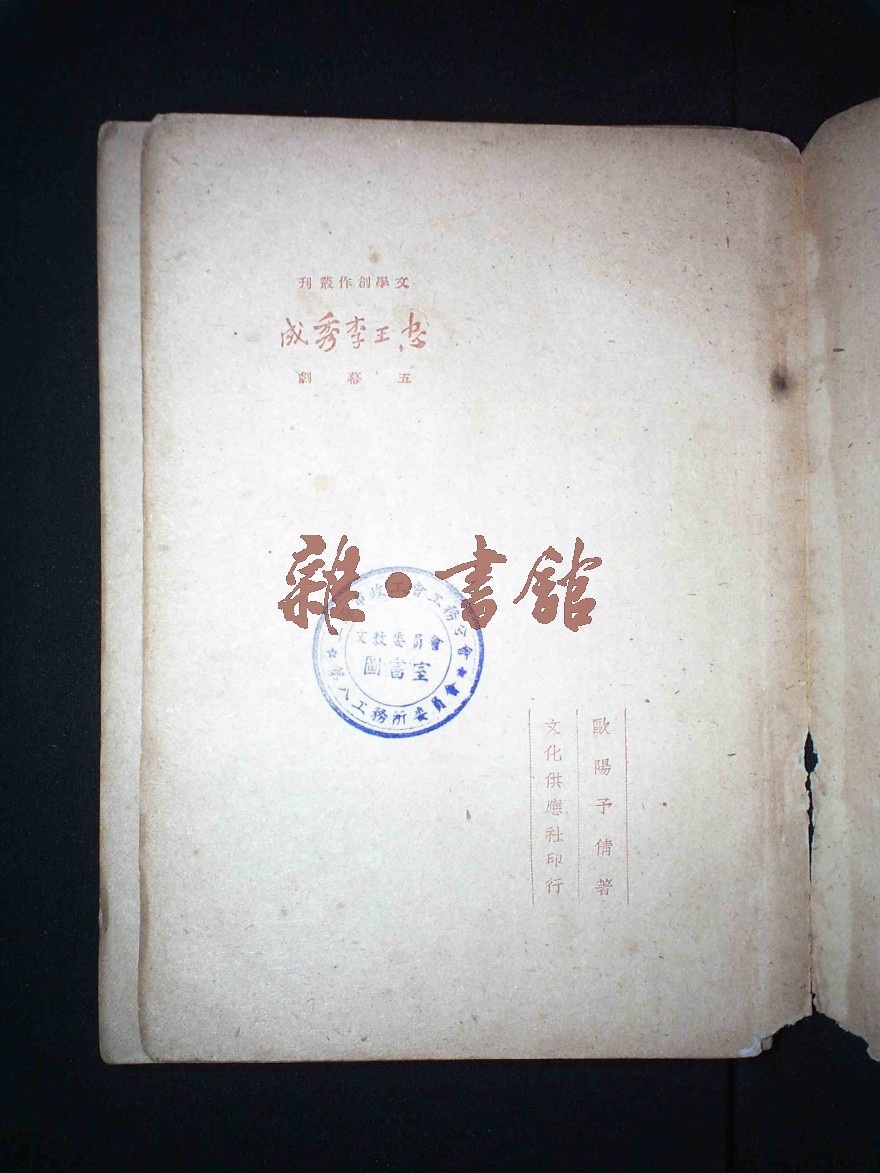 文學創作叢刊
忠王李秀成
五幕劇
雜·書館
市政工會工務分會
文教委員會
圖書室
第八工務所委員會
歐陽予倩著
文化供應社印行